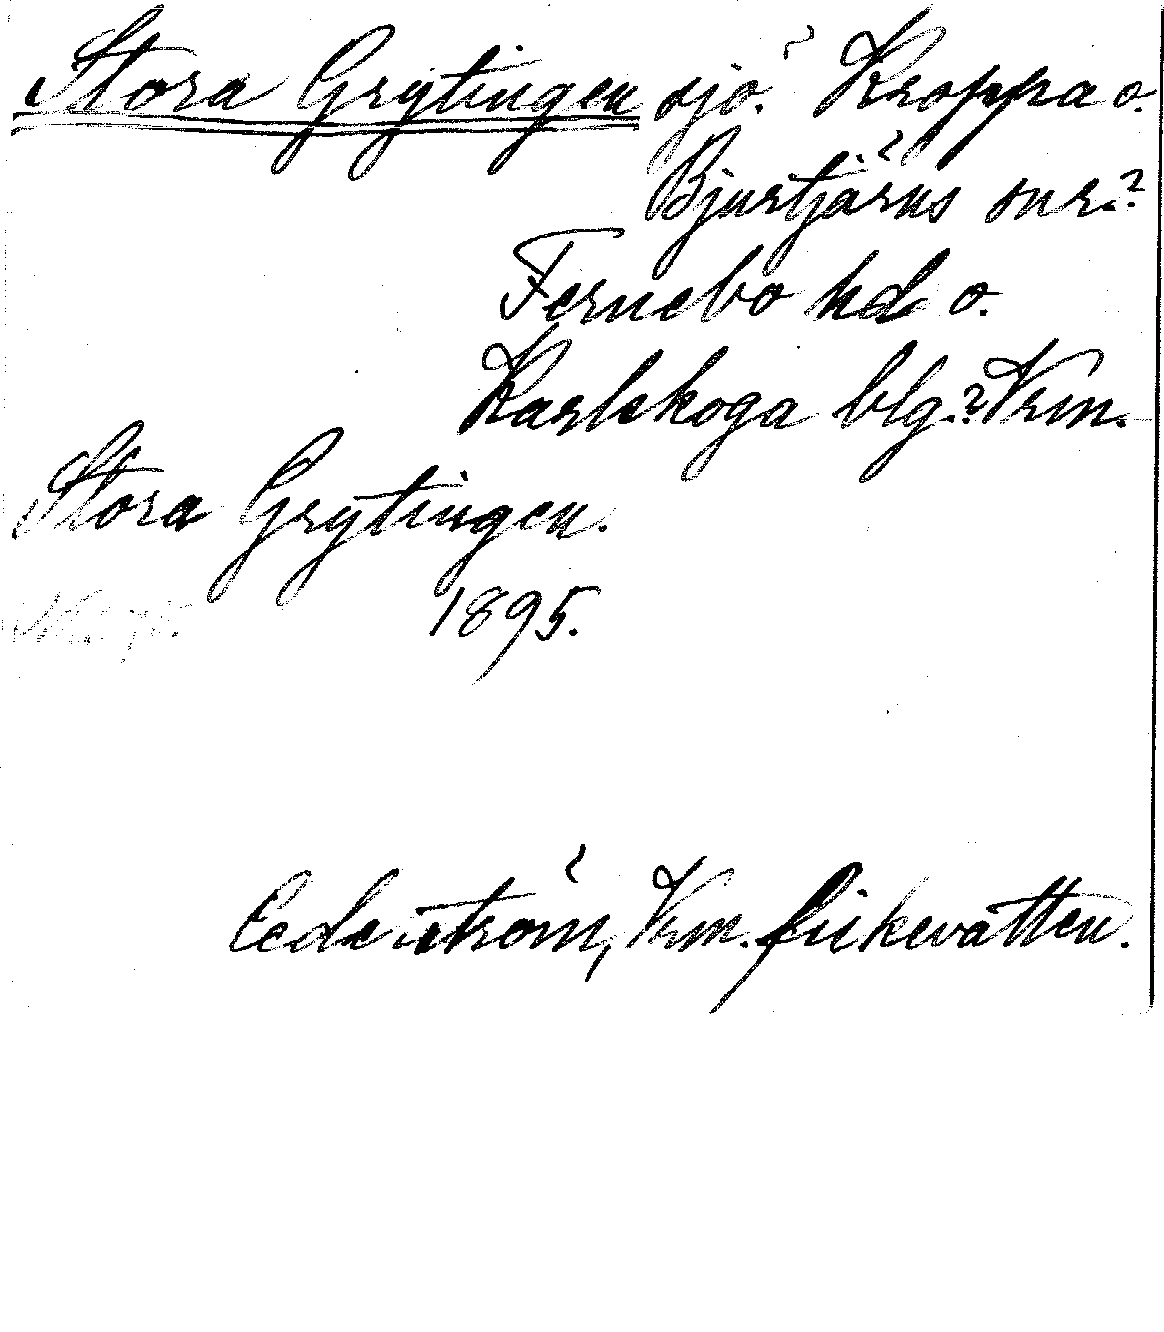 Stora Grytingen sjö. Kroppa o.
Bjurtjärns snr.?
Fernebo hd o.
Karlskoga blg.? Vrm.
Stora Grytingen.
1895.
Cederström, Vrm. fiskevatten.